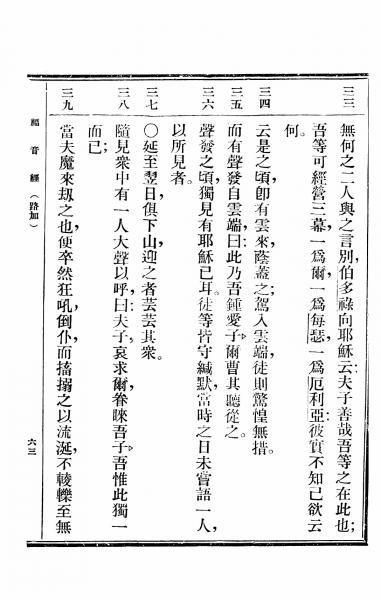 三三
無何之二人與之言別，伯多祿向耶穌云：夫子善哉吾等之在此也；
吾等可經營三幕，一爲爾，一爲每瑟，一爲厄利亞：彼實不知己欲云
何。
三四
云是之頃卽有雲來，蔭蓋之；駕入雲端，徒則驚惶無措。
三五
而有聲發自雲端曰：此乃吾鍾愛子，爾曹其聽從之。
三六
聲發之頃，獨見有耶穌已耳。徒等皆守緘默，當時之日未嘗語一人，
以所見者。
三七
〇延至翌日，俱下山，迎之者芸芸其衆。
三八
隨見衆中有一人大聲以呼曰：夫子，哀求爾，眷睞吾子，吾惟此獨一
而已；
三九
當夫魔來刼之也，便卒然狂吼，倒仆，而搐搦之以流涎，不輘轢至無
福音經（路加）
六三